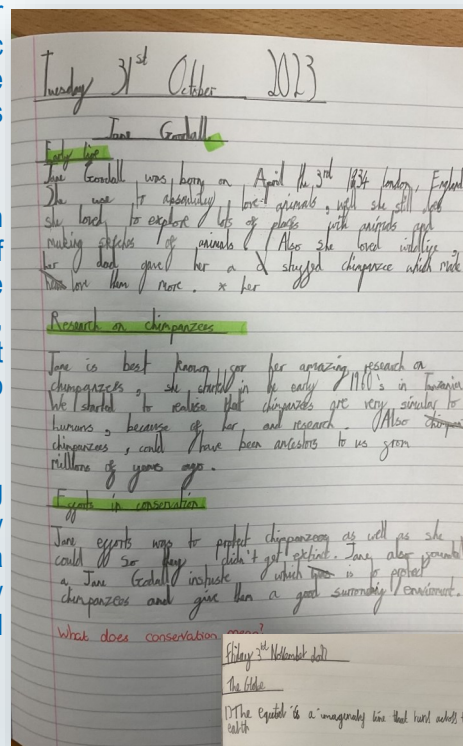 Tuesday 31st October 2023
Jane Goodall
Early life
Jane Goodall was born on April the 3rd 1934 london, England
She use to absolutley love animals, well she still does
she loved to explore lots of places with animals and
making sketches of animals. Also she loved wildlife,
her dad gave her a stuffed chimpanzee which made
love them more. * her
Research on chimpanzees
Jane is best known for her amazing research on
chimpanzees, she started in the early 1960's in Tanzania
We started to realise that chimpanzees are very similar to
humans, because of her, and research. Also
chimpanzees, could have been ancestors to us from
millions of years ago.
Efforts in conservation
Jane efforts was to protect chimpanzees as well as she
could so they didn't get extinct. Jane also
a Jane Godall which is to protect
chimpanzees and give them a good
What does conservation mean?
Friday 3rd November
The Globe
1) The is a imaginary line that runs across
earth